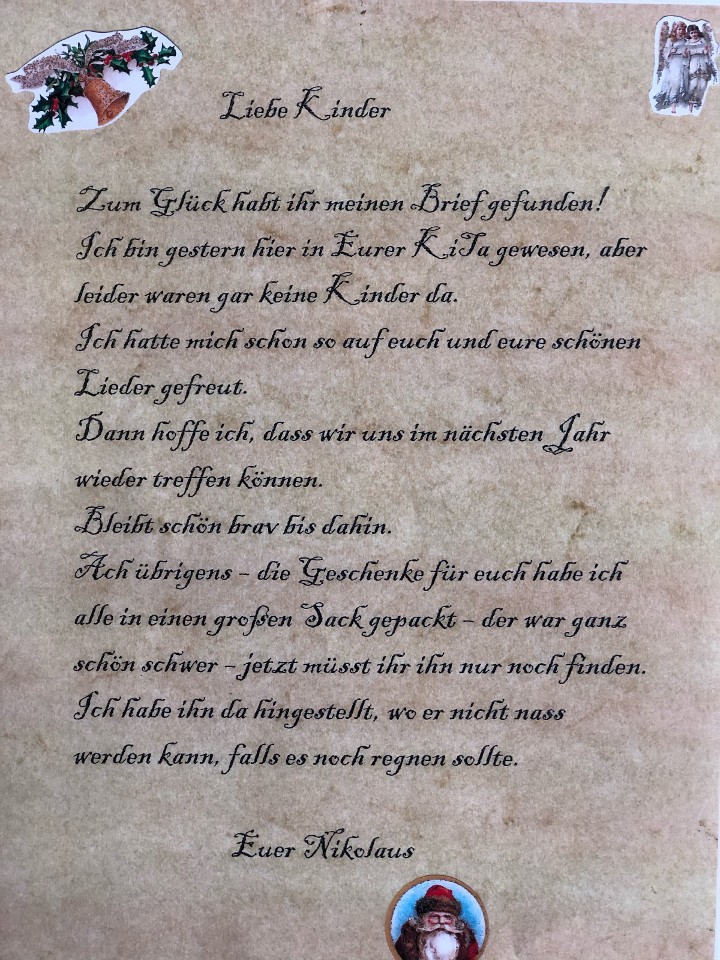 Liebe Kinder
Zum Glück habt ihr meinen Brief gefunden!
Ich bin gestern hier in Eurer KiTa gewesen, aber
leider waren gar keine Kinder da.
Ich hatte mich schon so auf euch und eure schönen
Lieder gefreut.
Dann hoffe ich, dass wir uns im nächsten Jahr
wieder treffen können.
Bleibt schön brav bis dahin.
Ach übrigens – die Geschenke für euch habe ich
alle in einen großen Sack gepackt – der war ganz
schön schwer – jetzt müsst ihr ihn nur noch finden.
Ich habe ihn da hingestellt, wo er nicht nass
werden kann, falls es noch regnen sollte.
Euer Nikolaus